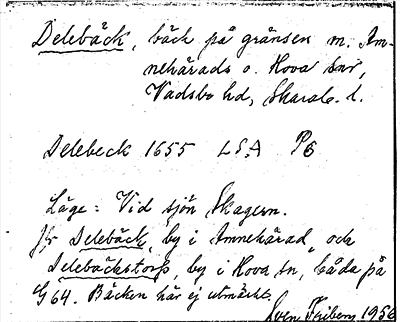 Delebäck, bäck på gränsen m. Am-
nehärads o. Hova snr,
Vadsbo hd, Skarab. l.
Delebeck 1655 LSA P6
Läge: Vid sjön Skagern.
Jfr Delebäck, by i Amnehärad, och
Delebäckstorp, by i Hova sn, båda på
G64. Bäcken här ej utmärkt.
Sven Friberg 1956